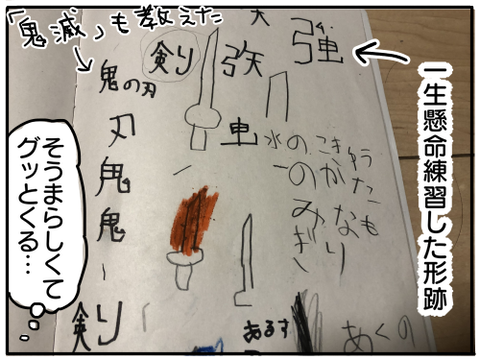 一生懸命練習した形跡
「鬼滅」も教えた
強
剣り
鬼の刃
刃
鬼
鬼
車
水の
こきゅう
のがなり
みぎ
剣り
あるす
あくの
そうまらしくて
グッとくる…